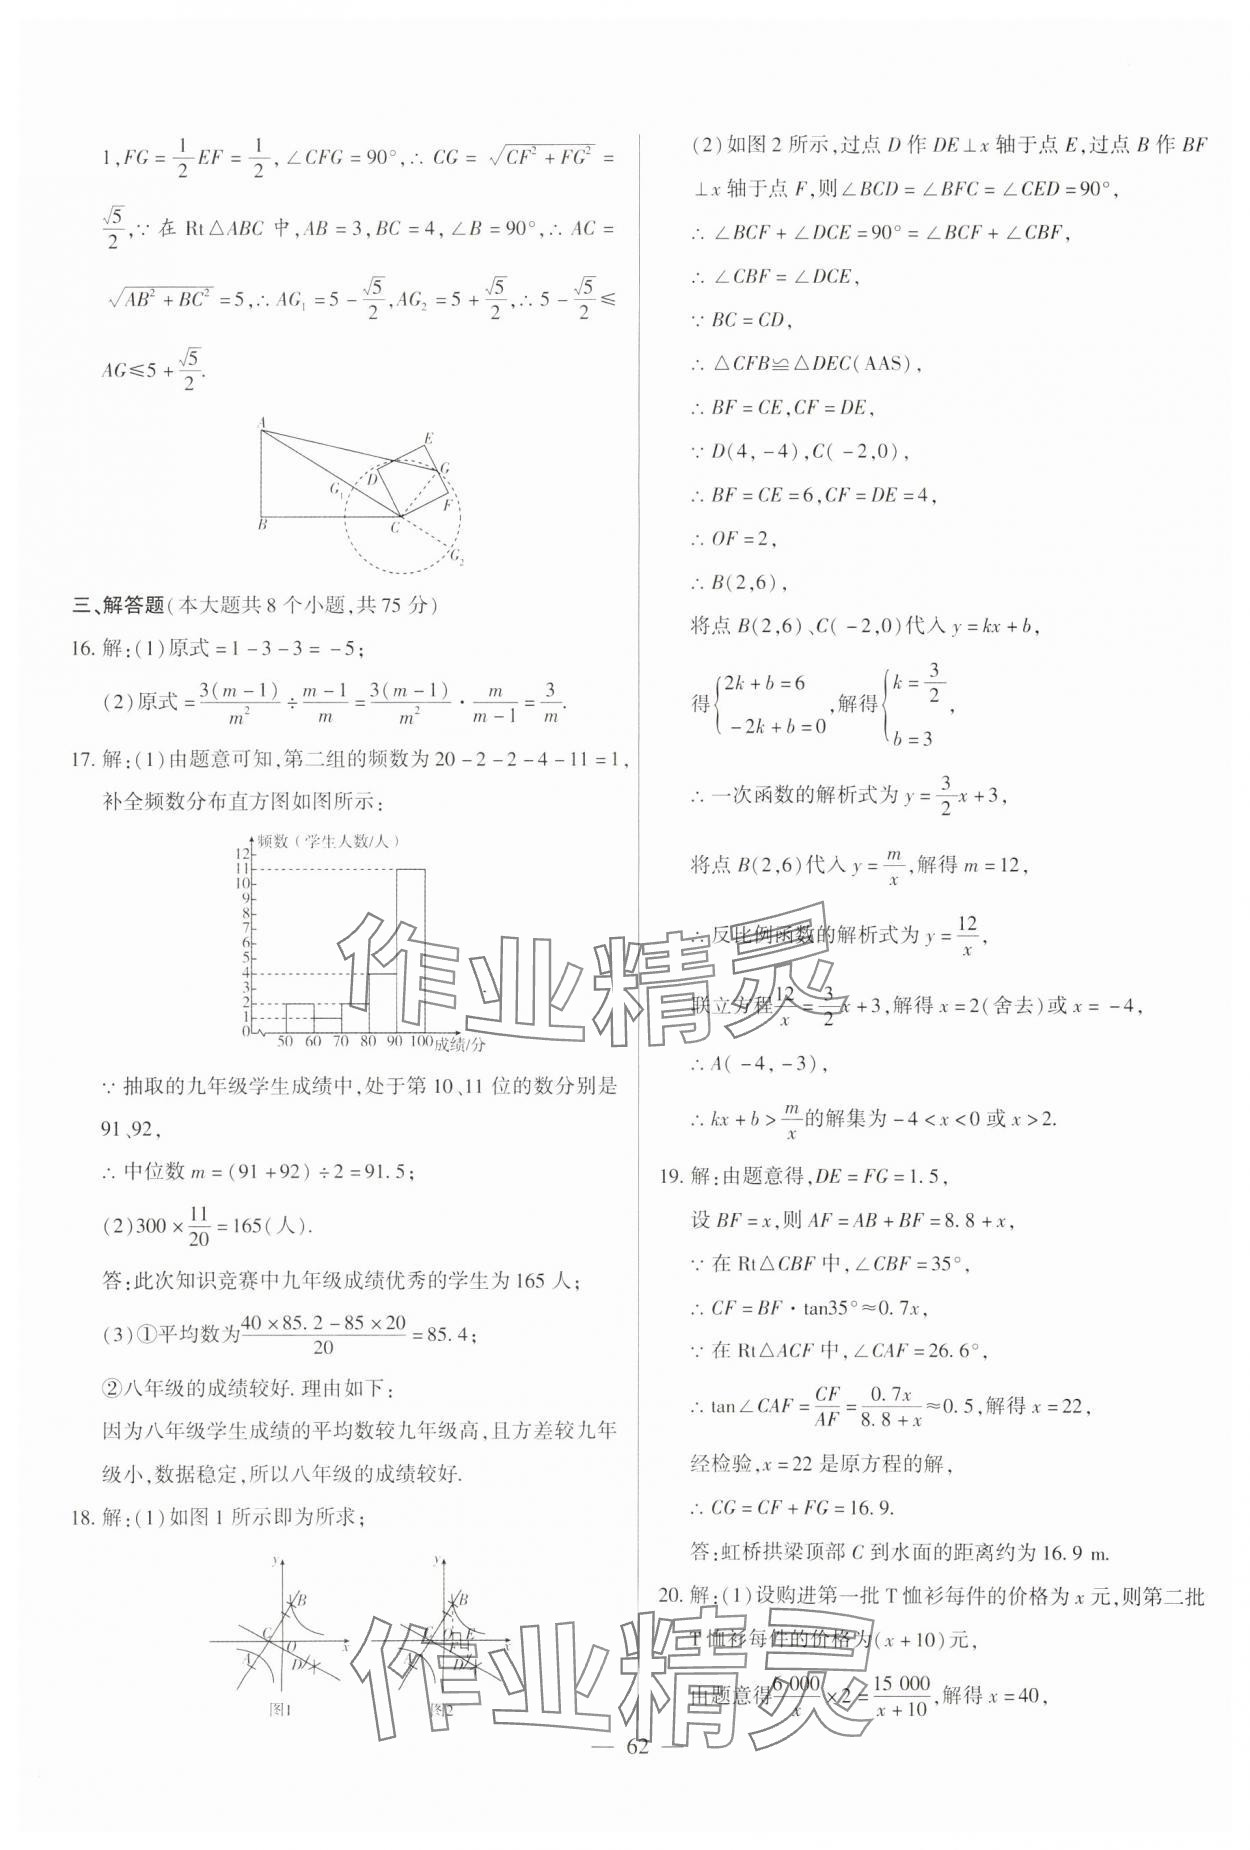 1,FG=1/2EF=1/2,∠CFG=90°,∴CG=√(CF²+FG²)=
√5/2,∵在Rt△ABC中,AB=3,BC=4,∠B=90°,∴AC=
√(AB²+BC²)=5,∴AG₁=5-√5/2,AG₂=5+√5/2,∴5-√5/2≤
AG≤5+√5/2.
A
E
D
G
G₁
F
B
C
G₂
三、解答题(本大题共8个小题,共75分)
16.解:(1)原式=1-3-3=-5;
(2)原式=3(m-1)/m²÷(m-1)/m=3(m-1)/m²·m/(m-1)=3/m.
17.解:(1)由题意可知,第二组的频数为20-2-2-4-11=1,
补全频数分布直方图如图所示:
频数(学生人数/人)
12
11
10
9
8
7
6
5
4
3
2
1
0
50 60 70 80 90 100 成绩/分
∵抽取的九年级学生成绩中,处于第10、11位的数分别是
91、92,
∴中位数m=(91+92)÷2=91.5;
(2)300×11/20=165(人).
答:此次知识竞赛中九年级成绩优秀的学生为165人;
(3)①平均数为(40×85.2-85×20)/20=85.4;
②八年级的成绩较好.理由如下:
因为八年级学生成绩的平均数较九年级高,且方差较九年
级小,数据稳定,所以八年级的成绩较好.
18.解:(1)如图1所示即为所求;
y
B
C
O
x
A
D
图1
y
B
C
O
F
E
x
A
D
图2
(2)如图2所示,过点D作DE⊥x轴于点E,过点B作BF
⊥x轴于点F,则∠BCD=∠BFC=∠CED=90°,
∴∠BCF+∠DCE=90°=∠BCF+∠CBF,
∴∠CBF=∠DCE,
∵BC=CD,
∴△CFB≌△DEC(AAS),
∴BF=CE,CF=DE,
∵D(4,-4),C(-2,0),
∴BF=CE=6,CF=DE=4,
∴OF=2,
∴B(2,6),
将点B(2,6)、C(-2,0)代入y=kx+b,
得{2k+b=6 -2k+b=0,解得{k=3/2 b=3,
∴一次函数的解析式为y=3/2x+3,
将点B(2,6)代入y=m/x,解得m=12,
∴反比例函数的解析式为y=12/x,
联立方程12/x=3/2x+3,解得x=2(舍去)或x=-4,
∴A(-4,-3),
∴kx+b>m/x的解集为-4<x<0或x>2.
19.解:由题意得,DE=FG=1.5,
设BF=x,则AF=AB+BF=8.8+x,
∵在Rt△CBF中,∠CBF=35°,
∴CF=BF·tan35°≈0.7x,
∵在Rt△ACF中,∠CAF=26.6°,
∴tan∠CAF=CF/AF=0.7x/(8.8+x)≈0.5,解得x=22,
经检验,x=22是原方程的解,
∴CG=CF+FG=16.9.
答:虹桥拱梁顶部C到水面的距离约为16.9 m.
20.解:(1)设购进第一批T恤衫每件的价格为x元,则第二批
T恤衫每件的价格为(x+10)元,
由题意得6 000/x×2=15 000/(x+10),解得x=40,
— 62 —
作业精灵
作业精灵